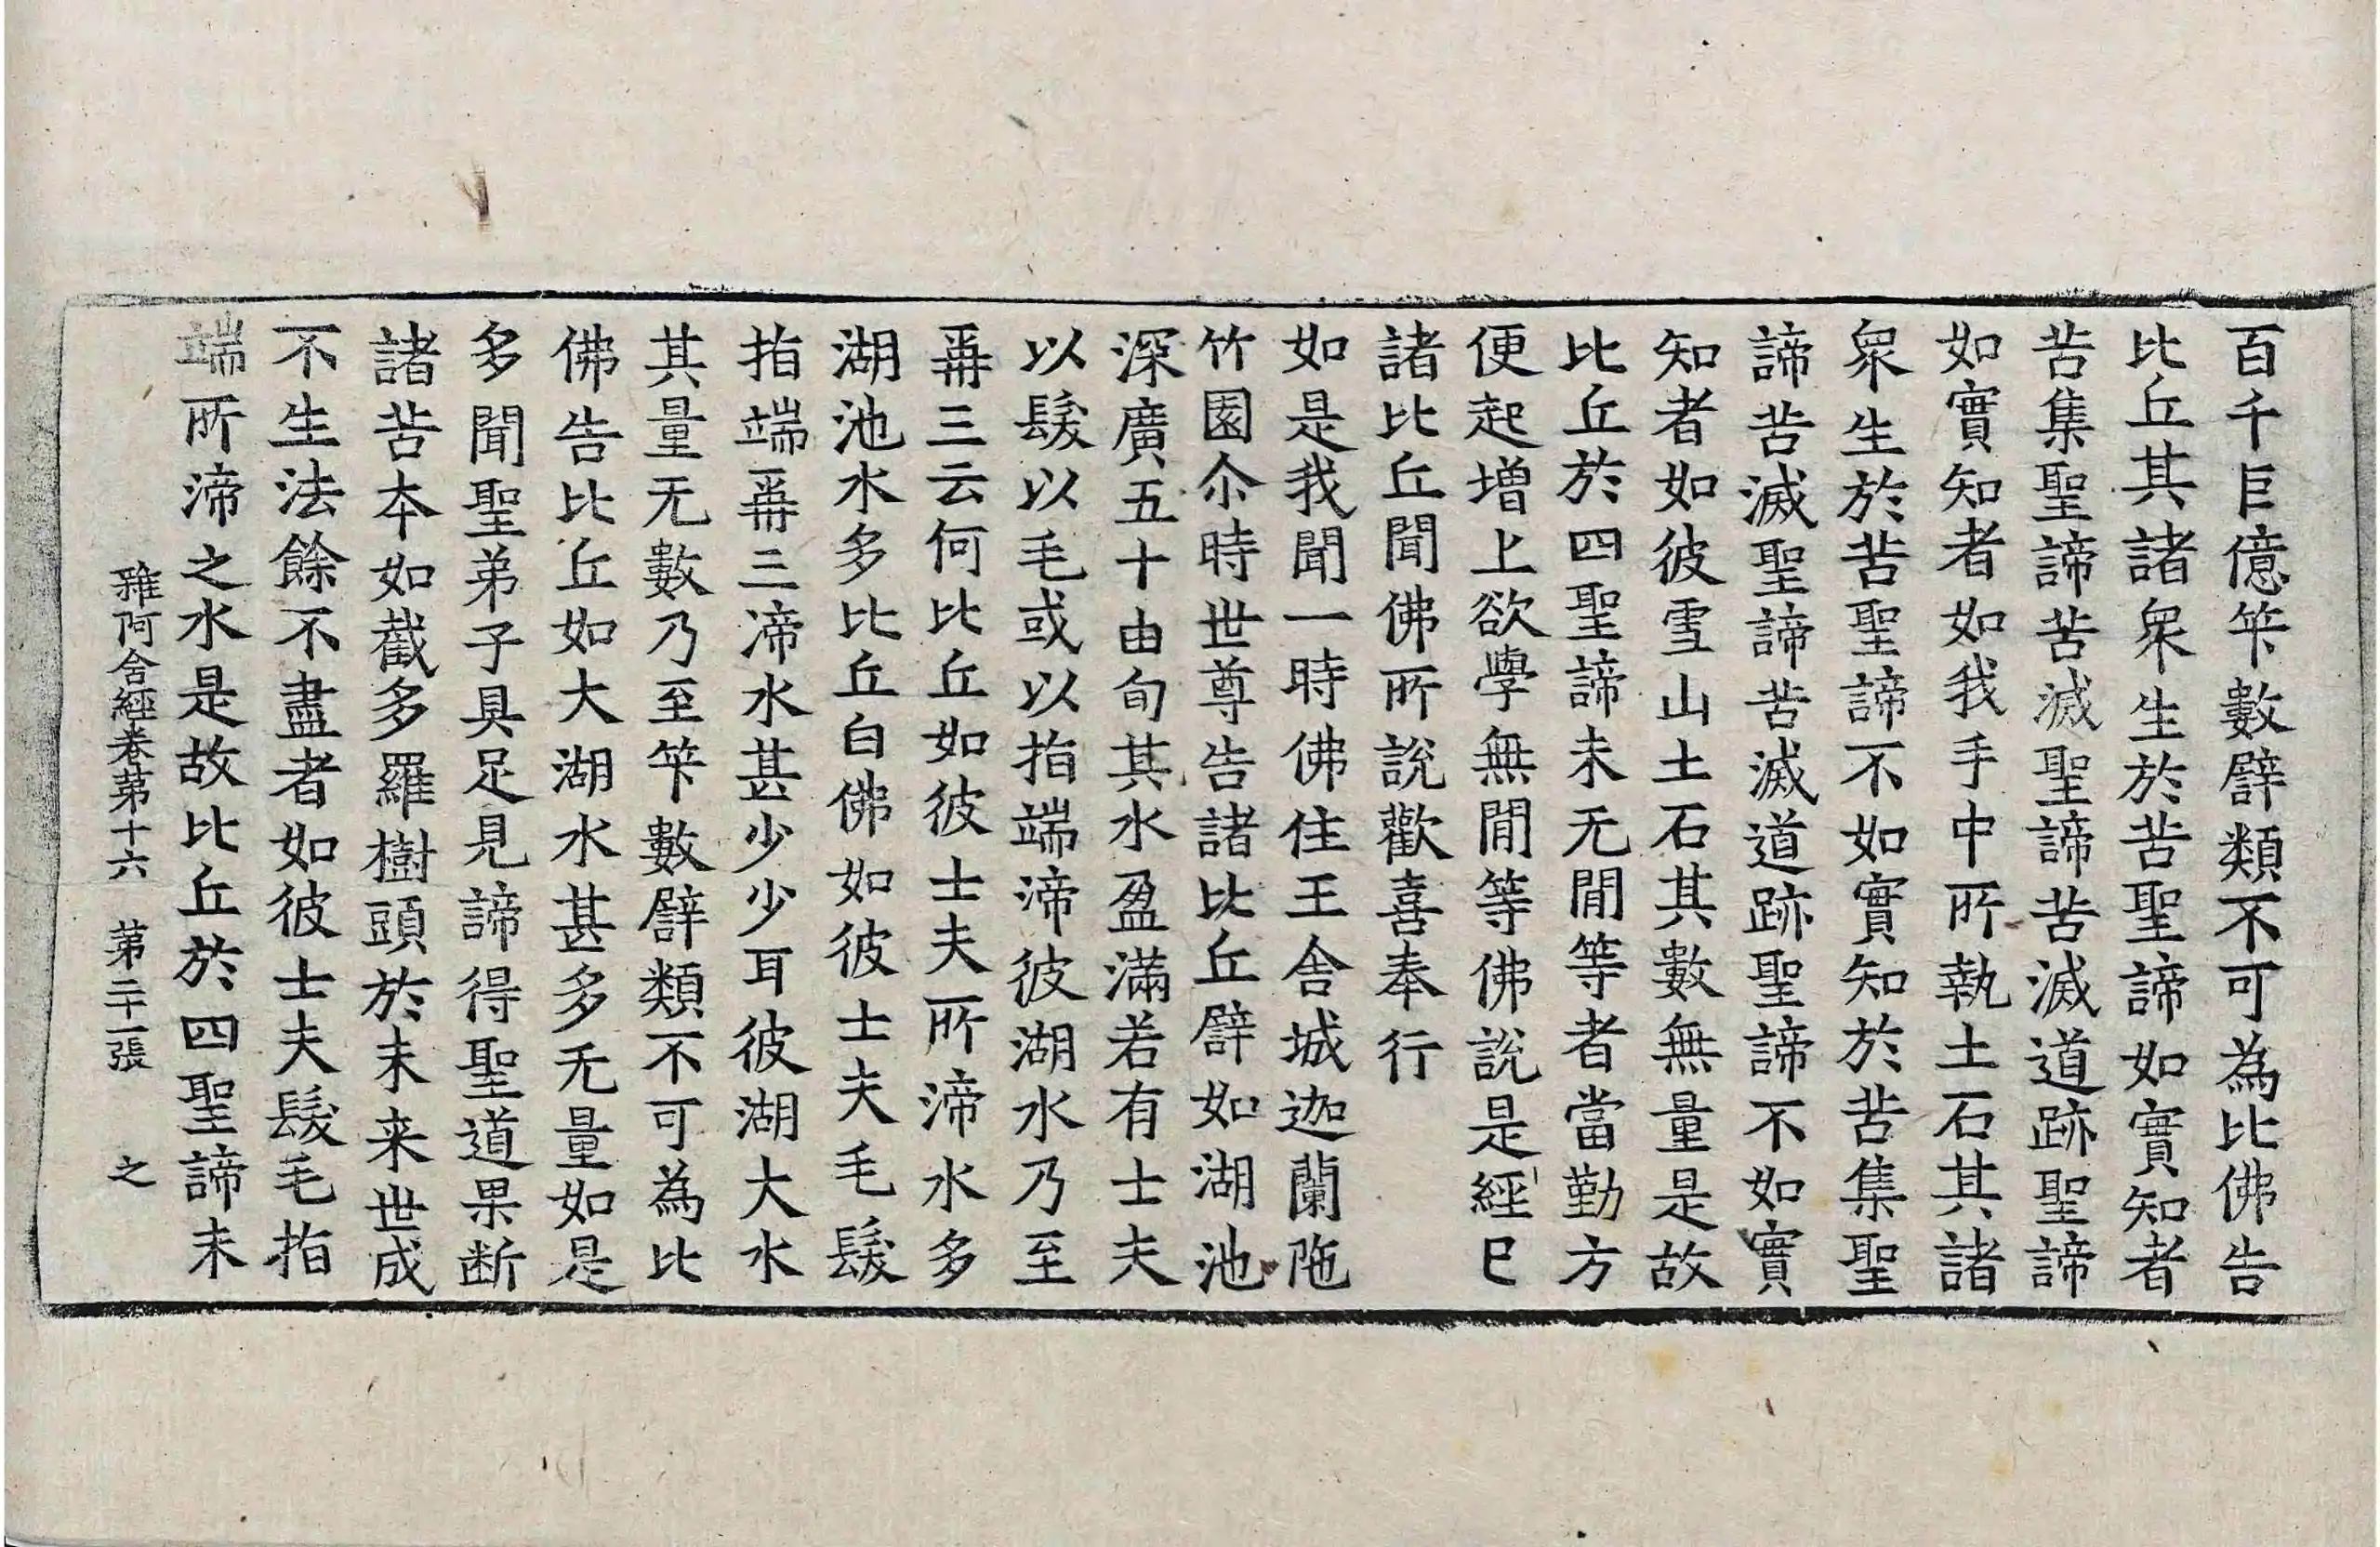 百千巨億筭數譬類不可為比佛告
比丘其諸眾生於苦聖諦如實知者
苦集聖諦苦滅聖諦苦滅道跡聖諦
如實知者如我手中所執土石其諸
眾生於苦聖諦不如實知於苦集聖
諦苦滅聖諦苦滅道跡聖諦不如實
知者如彼雪山土石其數無量是故
比丘於四聖諦未无閒等者當勤方
便起增上欲學無閒等佛說是經已
諸比丘聞佛所說歡喜奉行
如是我聞一時佛住王舍城迦蘭陁
竹園尒時世尊告諸比丘譬如湖池
深廣五十由旬其水盈滿若有士夫
以髮以毛或以指端渧彼湖水乃至
再三云何比丘如彼士夫所渧水多
湖池水多比丘白佛如彼士夫毛髮
指端再三渧水甚少少耳彼湖大水
其量无數乃至筭數譬類不可為比
佛告比丘如大湖水甚多无量如是
多聞聖弟子具足見諦得聖道果断
諸苦本如截多羅樹頭於未来世成
不生法餘不盡者如彼士夫髮毛指
端所渧之水是故比丘於四聖諦未
雜阿含經卷第十六 第二十一張 之